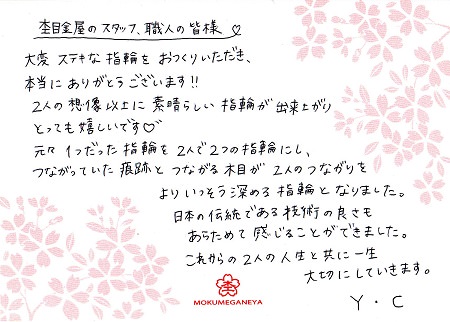 杢目金屋のスタッフ、職人の皆様♡
大変ステキな指輪をおつくりいただき、
本当にありがとうございます!!
2人の想像以上に素晴らしい指輪が出来上がり
とっても嬉しいです♡
元々1つだった指輪を2人で2つの指輪にし、
つながっていた痕跡とつながる木目が2人のつながりを
よりいっそう深める指輪となりました。
日本の伝統である技術の良さも
あらためて感じることができました。
これからの2人の人生と共に一生
大切にしていきます。
MOKUMEGANEYA
Y・C